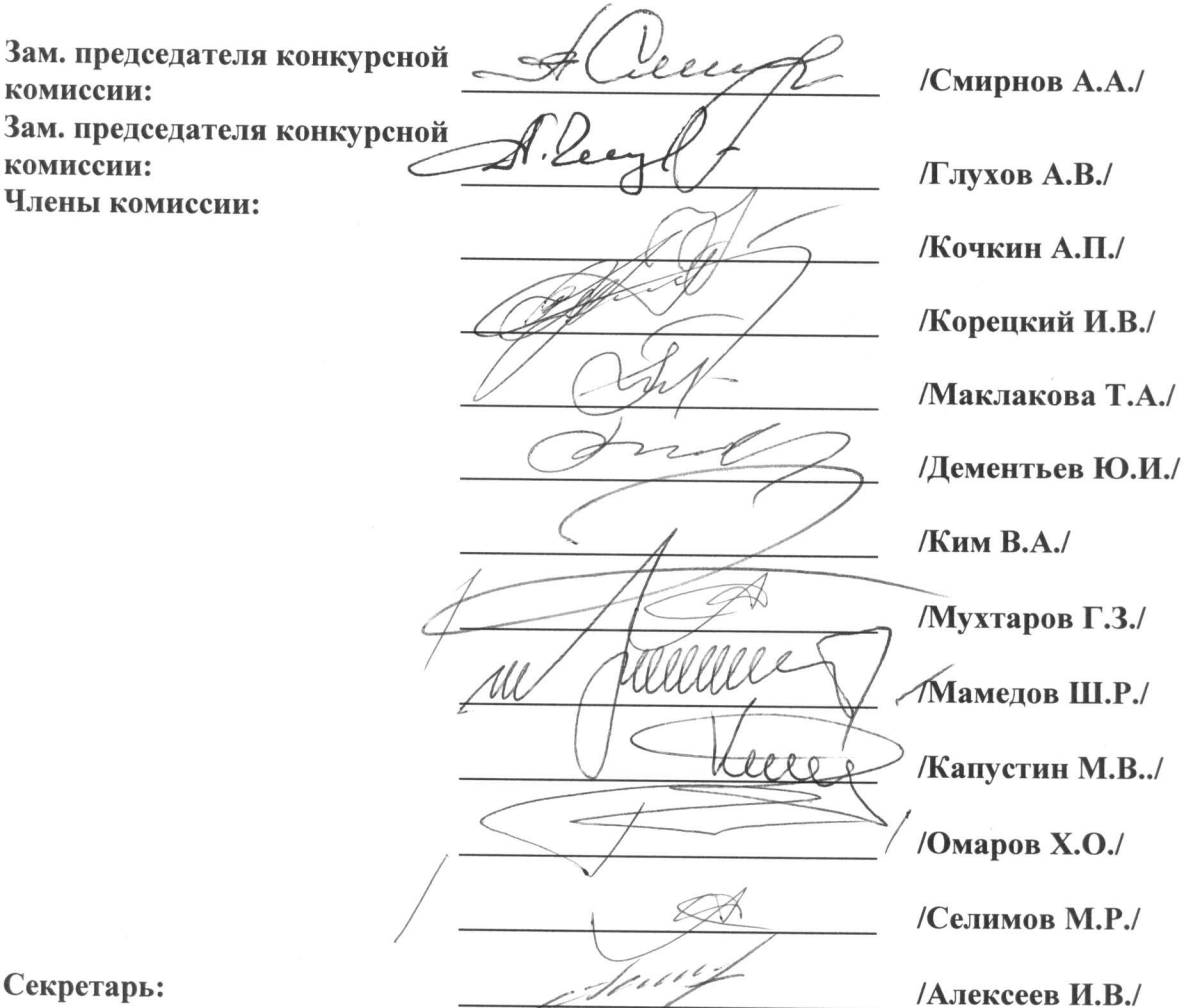 Зам. председателя конкурсной
комиссии: /Смирнов А.А./
Зам. председателя конкурсной
комиссии: /Глухов А.В./
Члены комиссии:
/Кочкин А.П./
/Корецкий И.В./
/Маклакова Т.А./
/Дементьев Ю.И./
/Ким В.А./
/Мухтаров Г.З./
/Мамедов Ш.Р./
/Капустин М.В../
/Омаров Х.О./
/Селимов М.Р./
Секретарь: /Алексеев И.В./